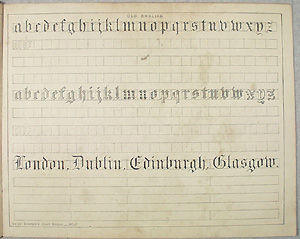 OLD ENGLISH
abcdefghijklmnopqrstuvwxyz
abcdefghijklmnopqrstuvwxyz
London, Dublin, Edinburgh, Glasgow.